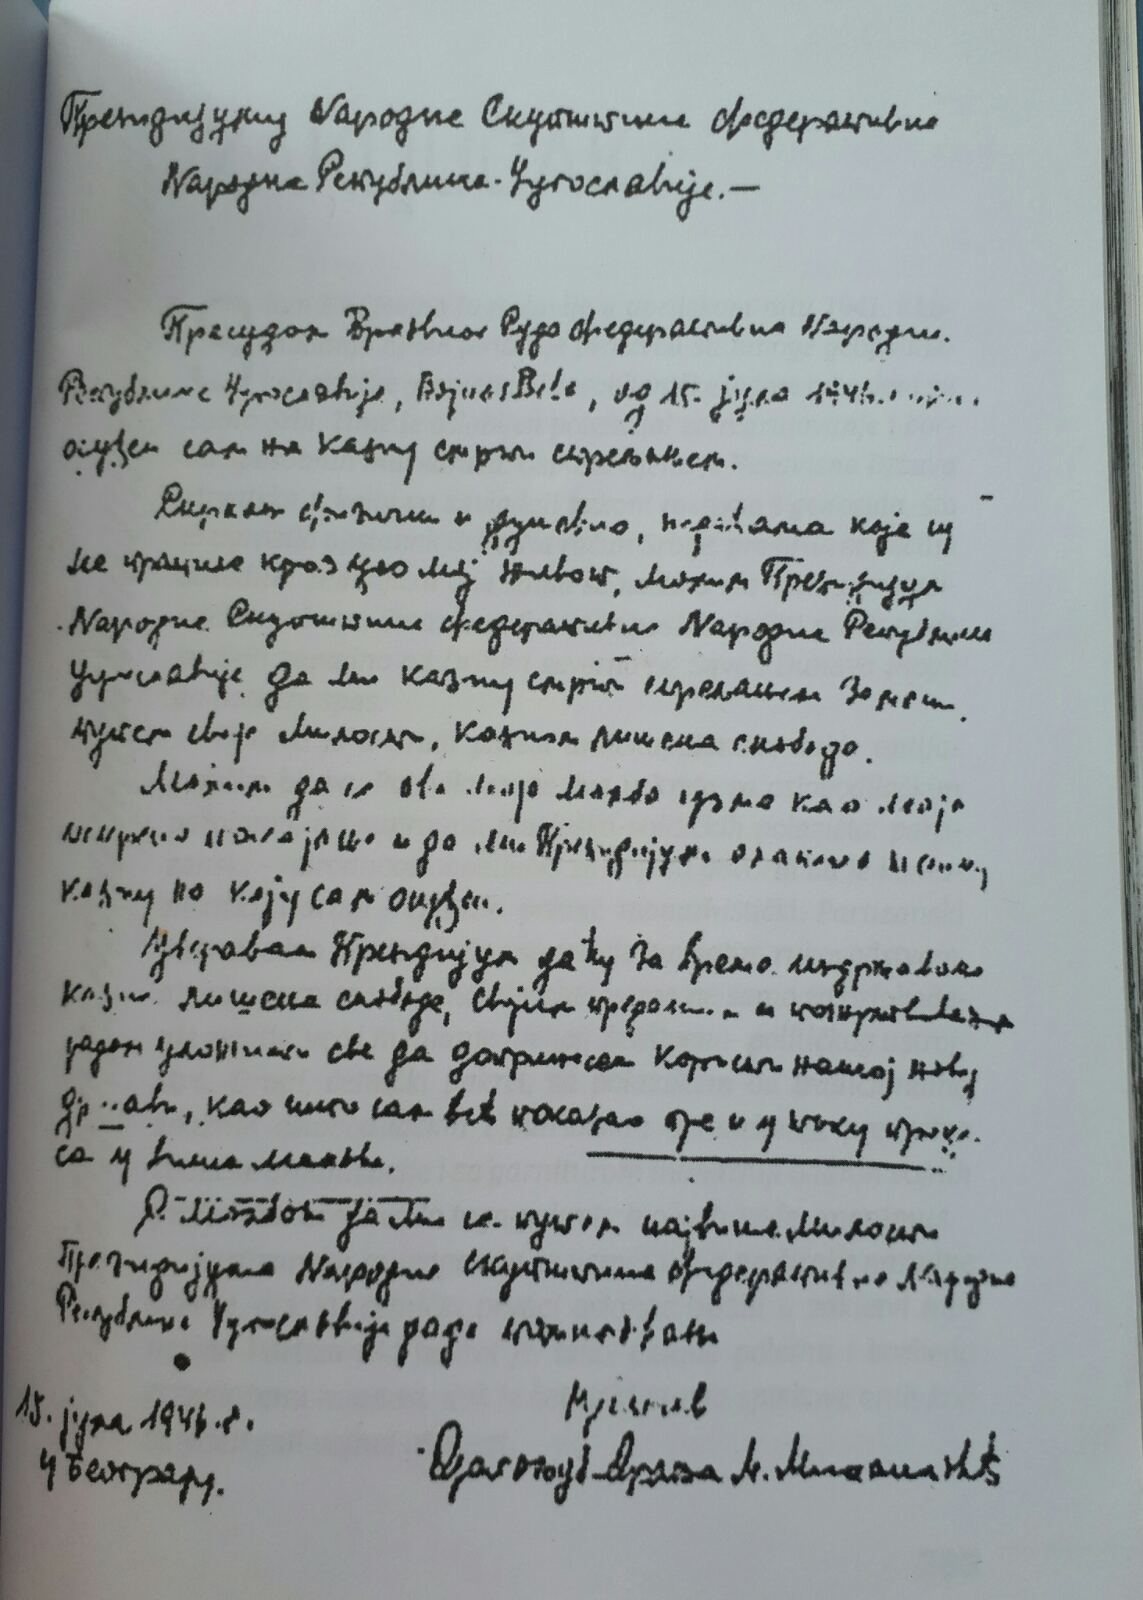 Президијуму Народне Скупштине Федеративне
Народне Републике Југославије.—
Пресудом Врховног Суда Федеративне Народне
Републике Југославије, Војног Већа, од 15. јула 1946.
осуђен сам на казну смрти стрељањем.
физички и душевно, недаћама које су
ме пратиле кроз цео мој живот, молим Президијум
Народне Скупштине Федеративне Народне Републике
Југославије да ми казну смрти стрељањем замени
путем своје милости, казном лишења слободе.
Молим да се ова моја молба узме као моје
искрено покајање и да ми Президијум олакша
казну на коју сам осуђен.
Уверавам Президијум да ћу за време издржавања
казне лишења слободе, својим преданим и пожртвованим
радом уложити све да допринесем користи нашој новој
држави, као што сам већ показао пре и у току проце-
са у
С молбом да ми се путем највише милости
Президијума Народне Скупштине Федеративне Народне
Републике Југославије
15. јула 1946. г.
у Београду.
Драгољуб-Дража М. Михаиловић